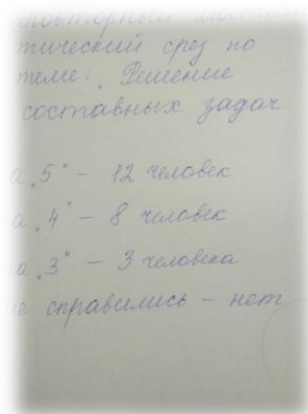 повторный матема
тический срез по
теме: Решение
составных задач
а „5" - 12 человек
а „4" - 8 человек
а „3" - 3 человека
не справились - нет